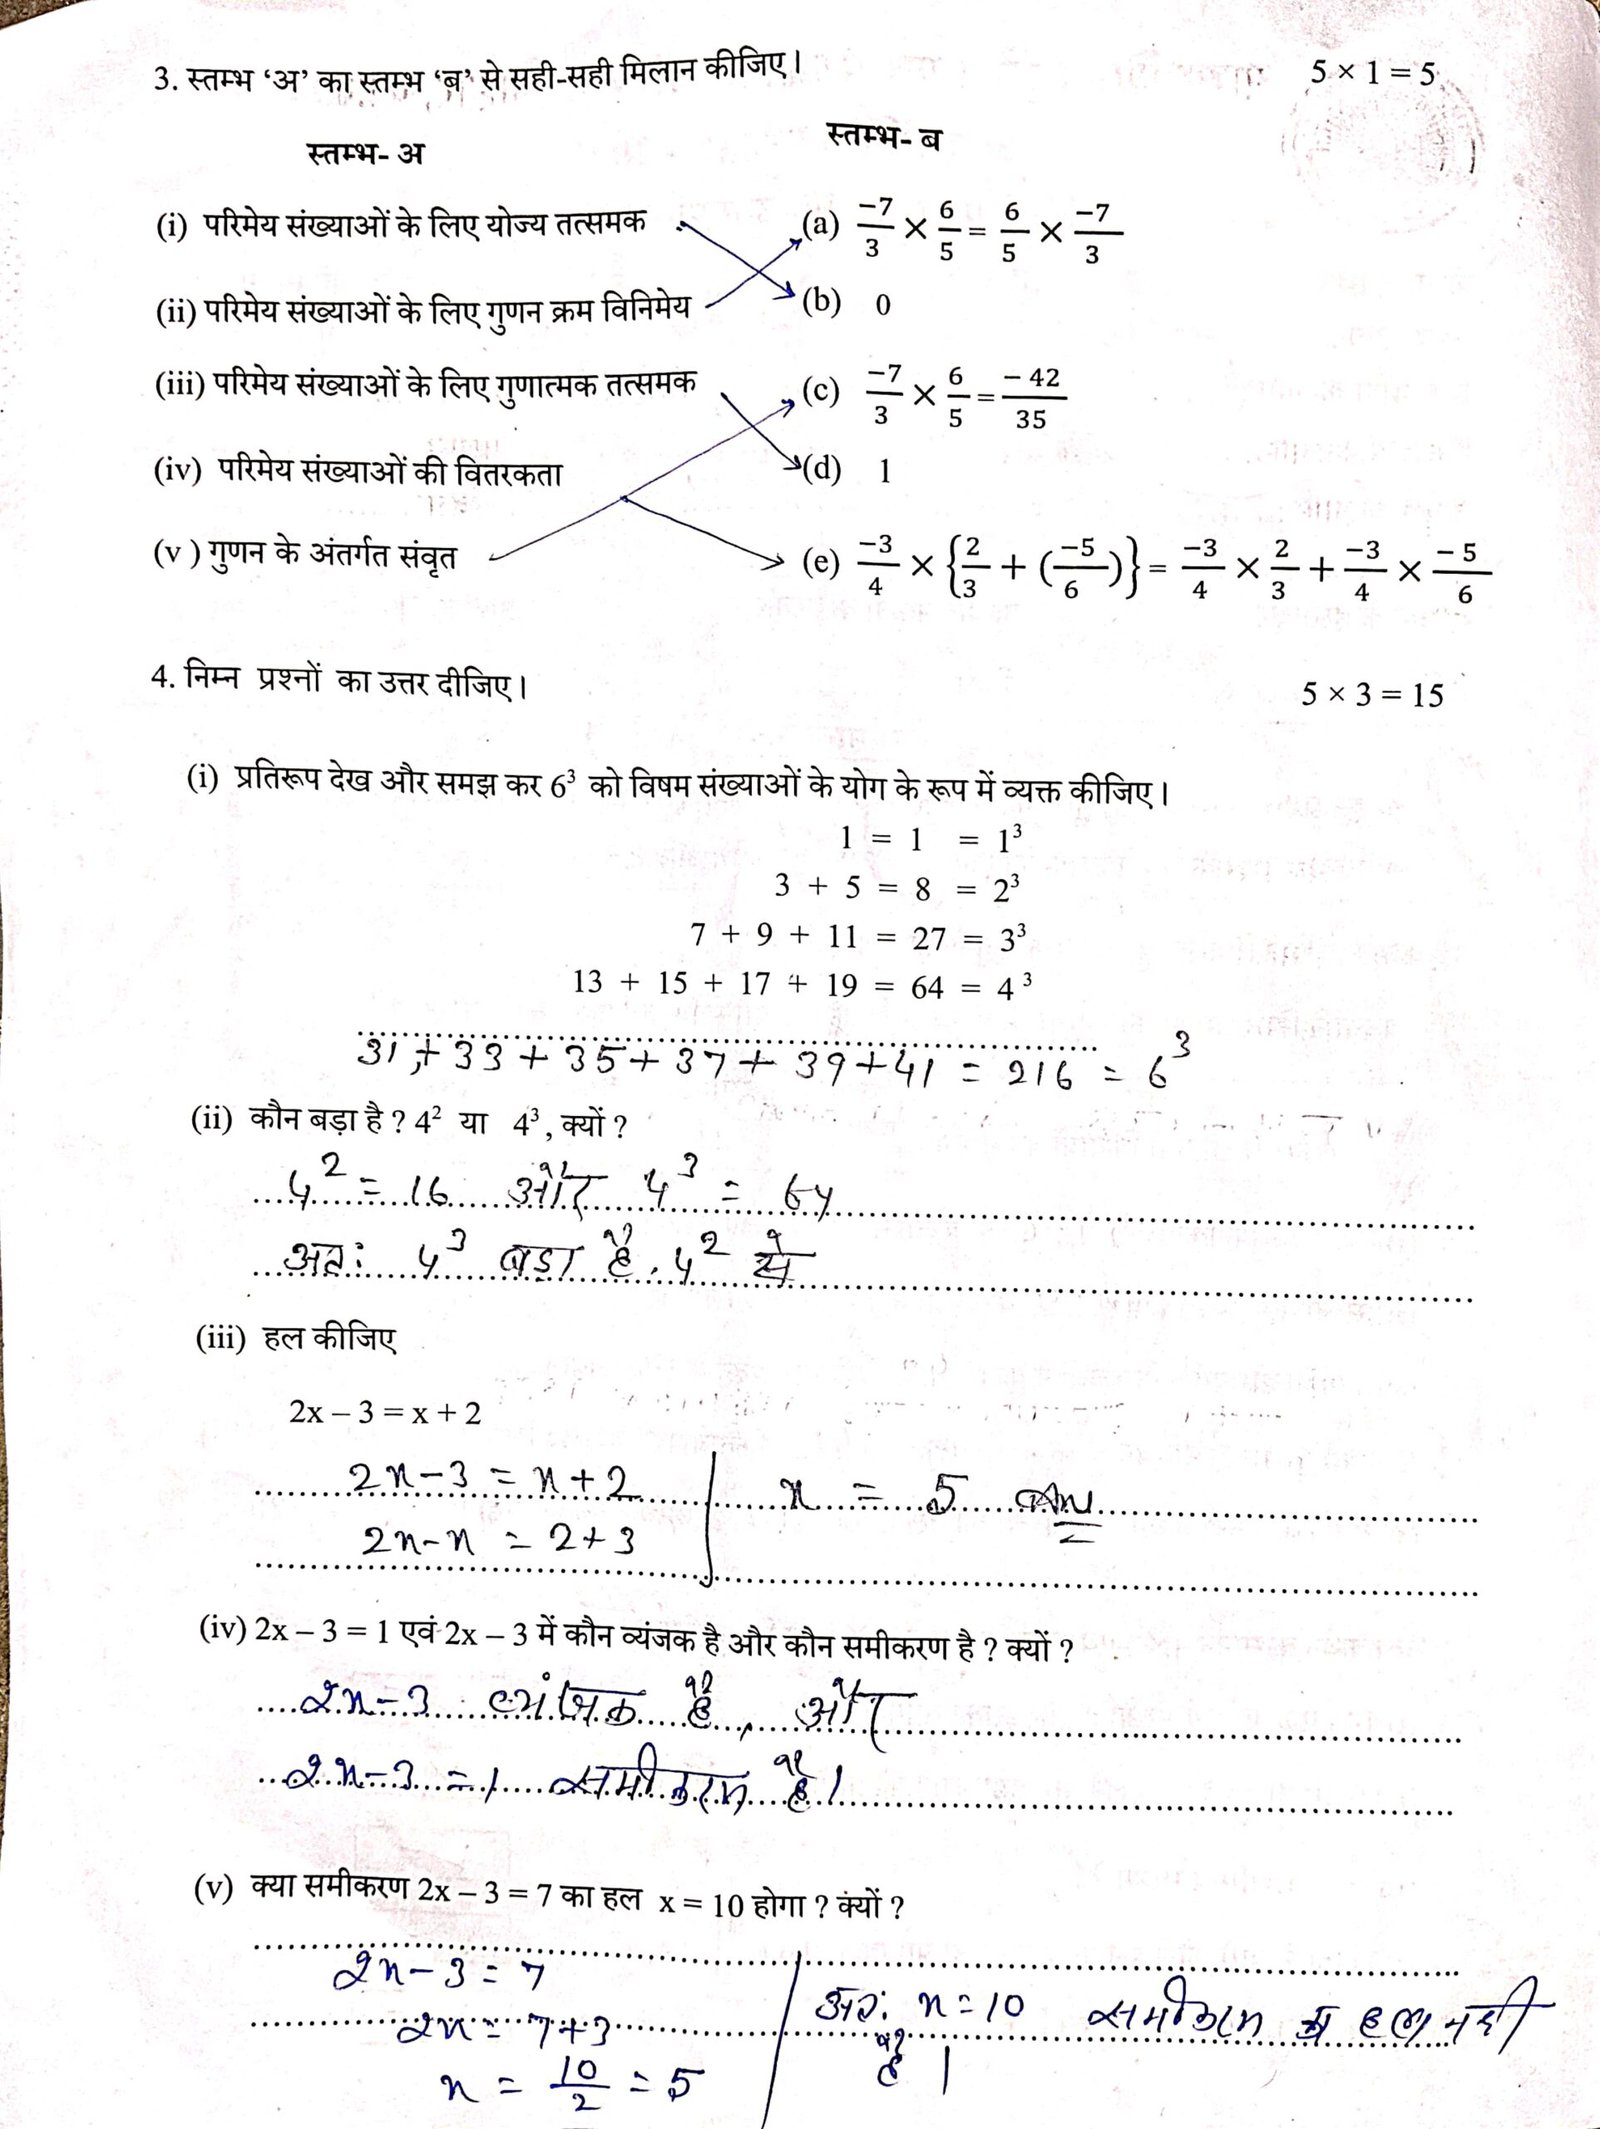 3. स्तम्भ ‘अ’ का स्तम्भ ‘ब’ से सही-सही मिलान कीजिए। 5 × 1 = 5
स्तम्भ- अ स्तम्भ- ब
(i) परिमेय संख्याओं के लिए योज्य तत्समक (a) -7/3 × 6/5 = 6/5 × -7/3
(ii) परिमेय संख्याओं के लिए गुणन क्रम विनिमेय (b) 0
(iii) परिमेय संख्याओं के लिए गुणात्मक तत्समक (c) -7/3 × 6/5 = -42/35
(iv) परिमेय संख्याओं की वितरकता (d) 1
(v ) गुणन के अंतर्गत संवृत (e) -3/4 × {2/3 + (-5/6)} = -3/4 × 2/3 + -3/4 × -5/6
4. निम्न प्रश्नों का उत्तर दीजिए। 5 × 3 = 15
(i) प्रतिरूप देख और समझ कर 6³ को विषम संख्याओं के योग के रूप में व्यक्त कीजिए।
1 = 1 = 1³
3 + 5 = 8 = 2³
7 + 9 + 11 = 27 = 3³
13 + 15 + 17 + 19 = 64 = 4³
31 + 33 + 35 + 37 + 39 + 41 = 216 = 6³
(ii) कौन बड़ा है ? 4² या 4³ , क्यों ?
4² = 16 और 4³ = 64
अतः 4³ बड़ा है. 4² से
(iii) हल कीजिए
2x – 3 = x + 2
2x - 3 = x + 2 x = 5 Ans
2x - x = 2 + 3
(iv) 2x – 3 = 1 एवं 2x – 3 में कौन व्यंजक है और कौन समीकरण है ? क्यों ?
2x - 3 व्यंजक है, और
2x - 3 = 1 समीकरण है।
(v) क्या समीकरण 2x – 3 = 7 का हल x = 10 होगा ? क्यों ?
2x - 3 = 7
2x = 7 + 3
x = 10/2 = 5
अतः x = 10 समीकरण का हल नही
है।